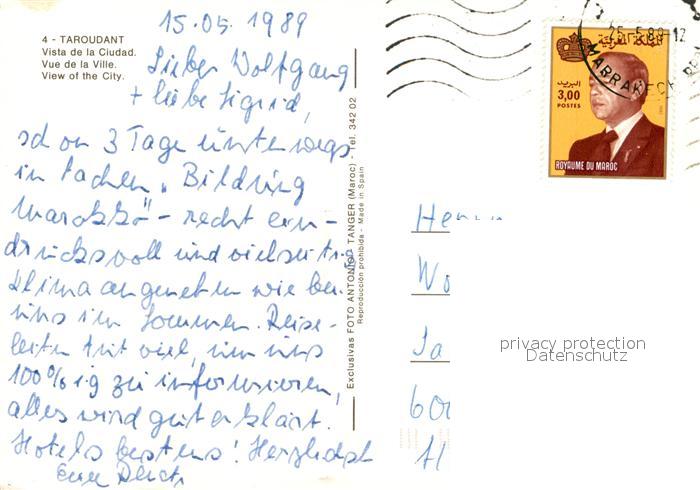 15.05.1989
4 - TAROUDANT
Vista de la Ciudad.
Vue de la Ville.
View of the City.
Lieber Wolfgang
+ liebe Sigrid,
schon 3 Tage unterwegs
in Sachen „Bildung
Marokko" - recht ein-
drucksvoll und vielseitig.
Klima angenehm wie bei
uns im Sommer. Reise-
leiter tut viel, um uns
100%ig zu informieren,
alles wird gut erklärt.
Hotels bestens! Herzlichst
Eure
Exclusivas FOTO ANTONIO - TANGER (Maroc) - Tel. 342 02
Reproducción prohibida - Made in Spain
25-5-89-12
MARRAKECH
المملكة المغربية
البريد
3,00
POSTES
ROYAUME DU MAROC
Herrn
Wo
Ja
600
privacy protection
Datenschutz